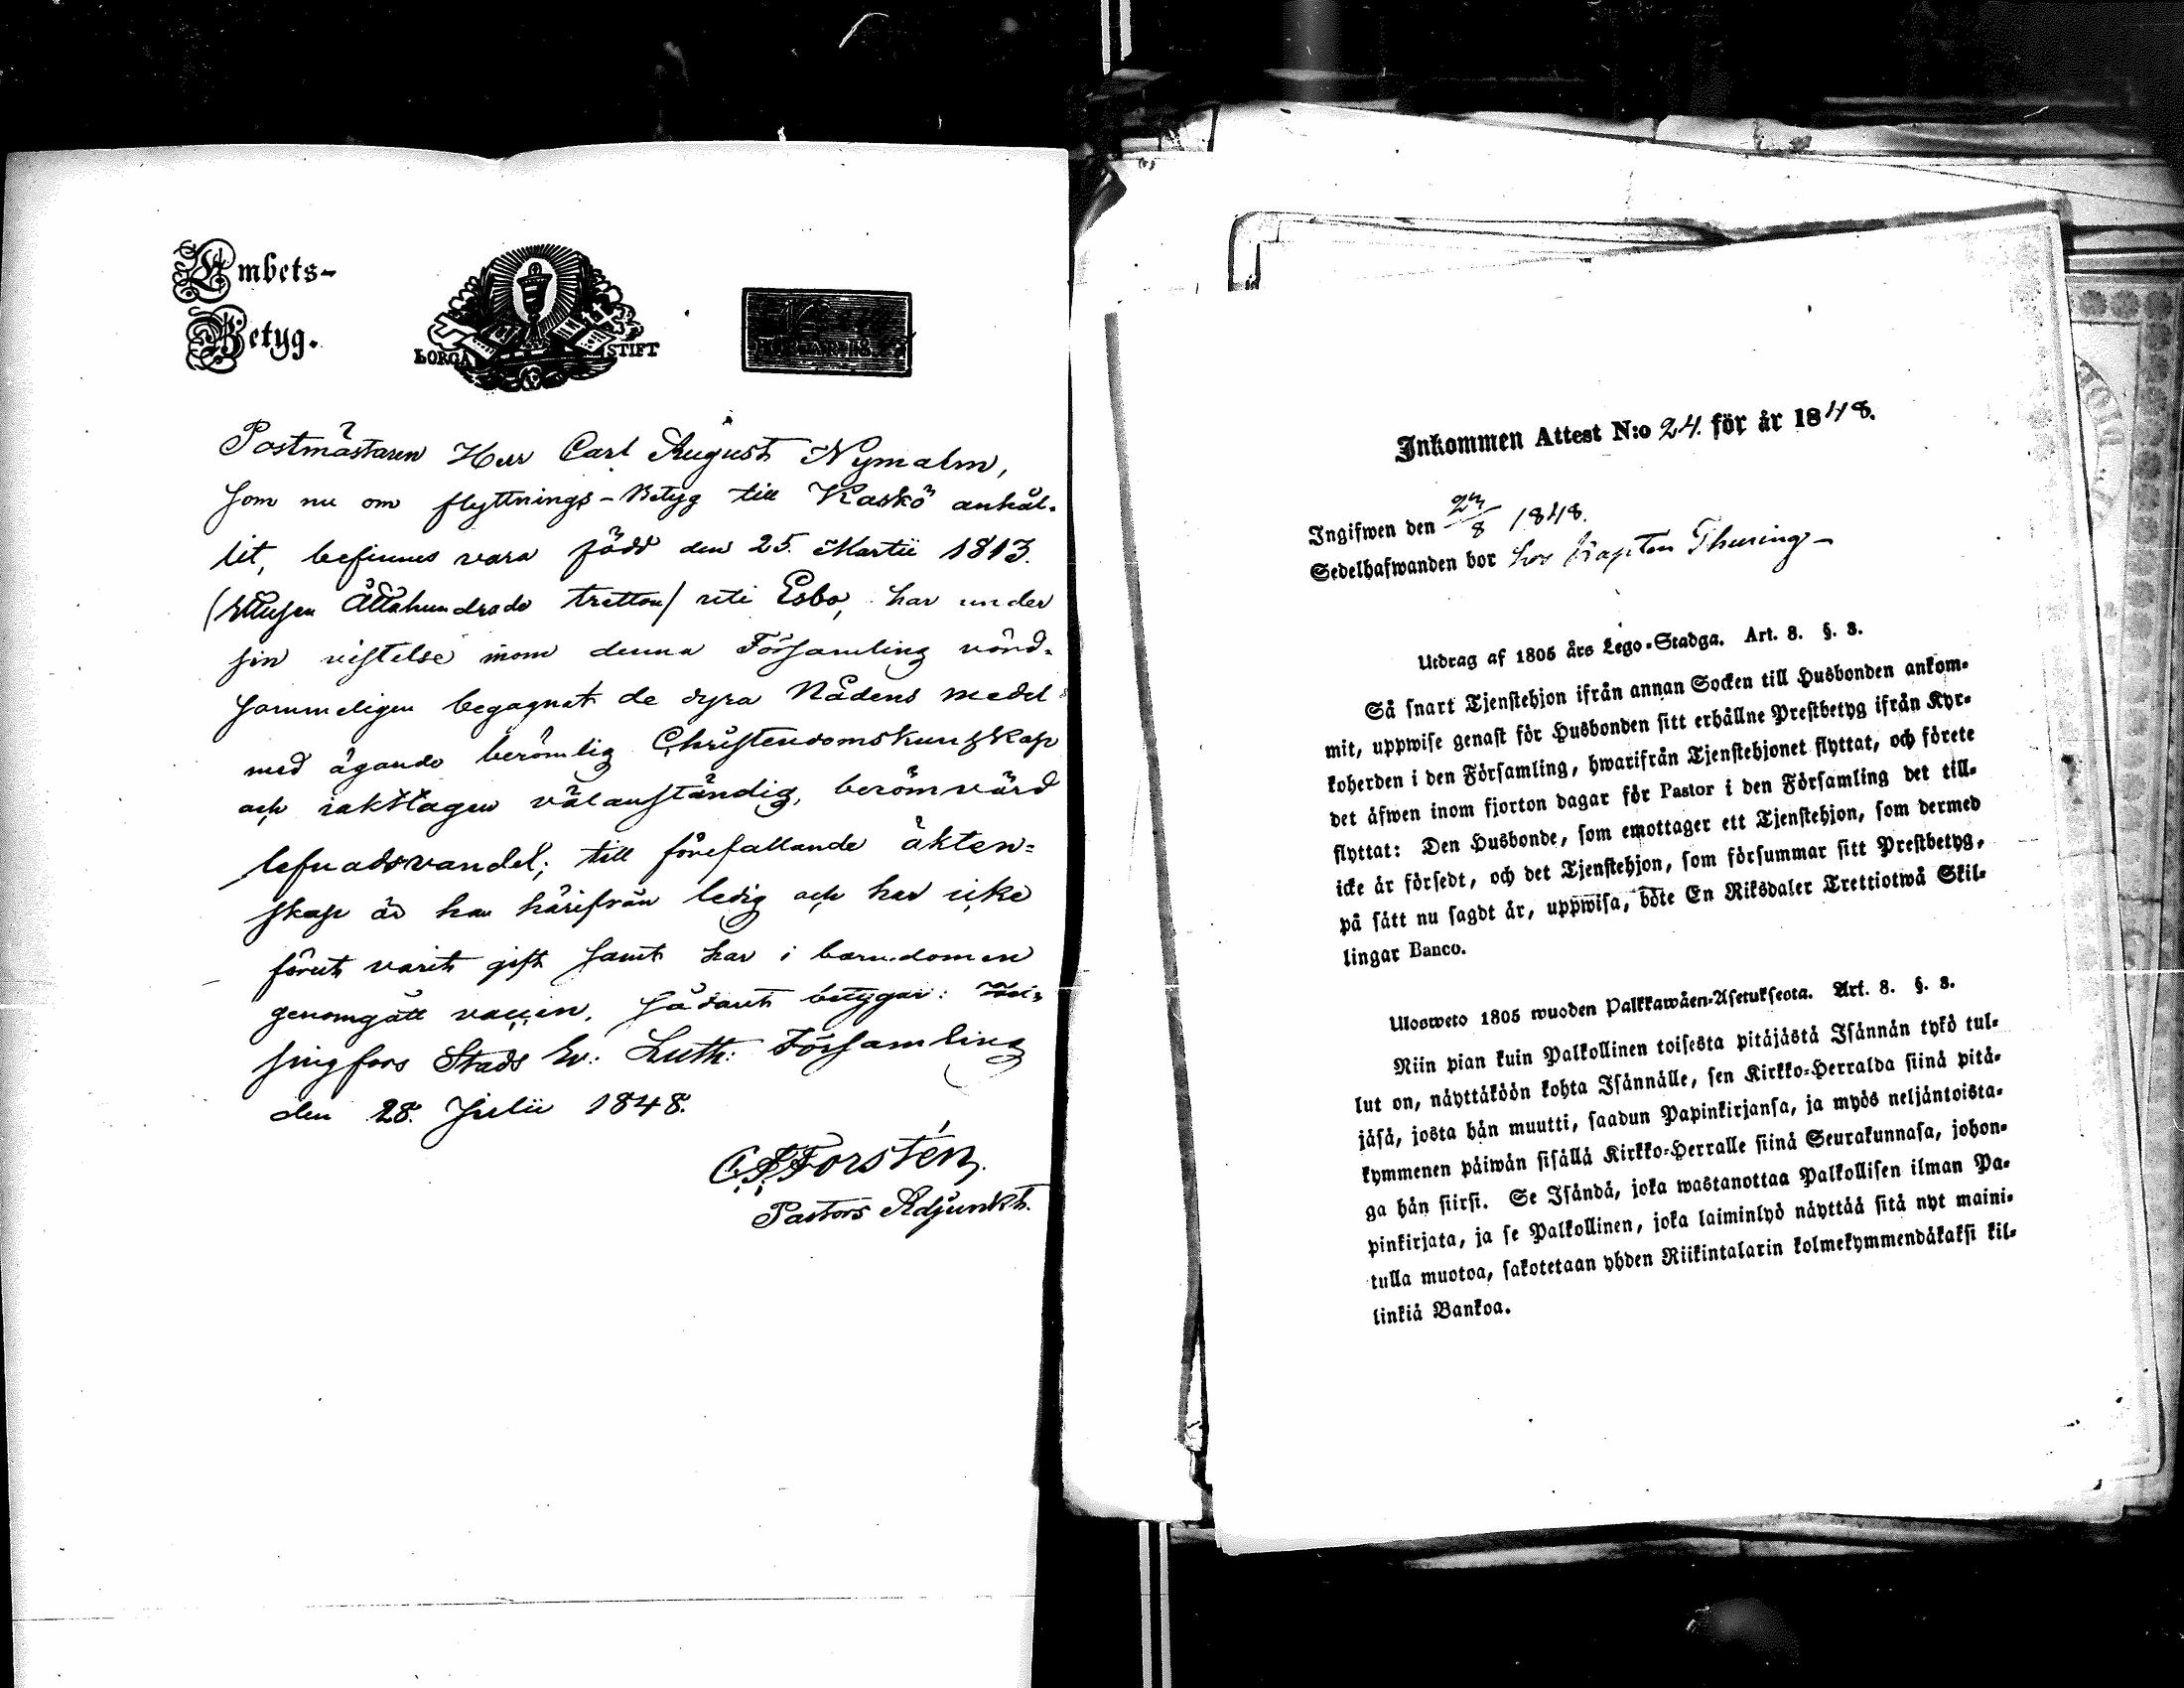 Embets-
Betyg.
BORGÅ STIFT
Postmästaren Herr Carl August Nymalm,
som nu om flyttnings-Betyg till Kaskö anhål-
lit, befinnes vara född den 25. Martii 1813.
(Ettusen Åttahundrade tretton) uti Esbo, har under
sin vistelse inom denna Församling vörd-
sammeligen begagnat de dyra Nådens medel
med ägande berömlig Christendomskunskap
och iakttagen välanständig, berömvärd
lefnadsvandel; till förefallande äkten=
skap är han härifrån ledig och har icke
förut varit gift samt har i barndomen
genomgått vaccin. Sådant betygar: Hel-
singfors Stads Ev: Luth: Församling
den 28. Julii 1848.
Forstén,
Pastors Adjunkt.
Inkommen Attest N:o 24. för år 1848.
Ingifwen den 23/8 1848.
Sedelhafwanden bor hos Kapten Thuring-
Utdrag af 1805 års Lego-Stadga. Art. 8. §. 3.
Så snart Tjenstehjon ifrån annan Socken till Husbonden ankom-
mit, uppwise genast för Husbonden sitt erhållne Prestbetyg ifrån Kyr-
koherden i den Församling, hwarifrån Tjenstehjonet flyttat, och förete
det äfwen inom fjorton dagar för Pastor i den Församling det till-
flyttat: Den Husbonde, som emottager ett Tjenstehjon, som dermed
icke är försedt, och det Tjenstehjon, som försummar sitt Prestbetyg,
på sätt nu sagdt är, uppwisa, böte En Riksdaler Trettiotwå Skil-
lingar Banco.
Ulosweto 1805 wuoden Palkkawäen-Asetuksesta. Art. 8. §. 3.
Niin pian kuin Palkollinen toisesta pitäjästä Isännän tykö tul-
lut on, näyttäköön kohta Isännälle, sen Kirkko-Herralda siinä pitä-
jäsä, josta hän muutti, saadun Papinkirjansa, ja myös neljäntoista-
kymmenen päiwän sisällä Kirkko-Herralle siinä Seurakunnasa, johon-
ga hän siirsi. Se Isändä, joka wastanottaa Palkollisen ilman Pa-
pinkirjata, ja se Palkollinen, joka laiminlyö näyttää sitä nyt maini-
tulla muotoa, sakotetaan yhden Riikintalarin kolmekymmendäkaksi kil-
linkiä Bankoa.